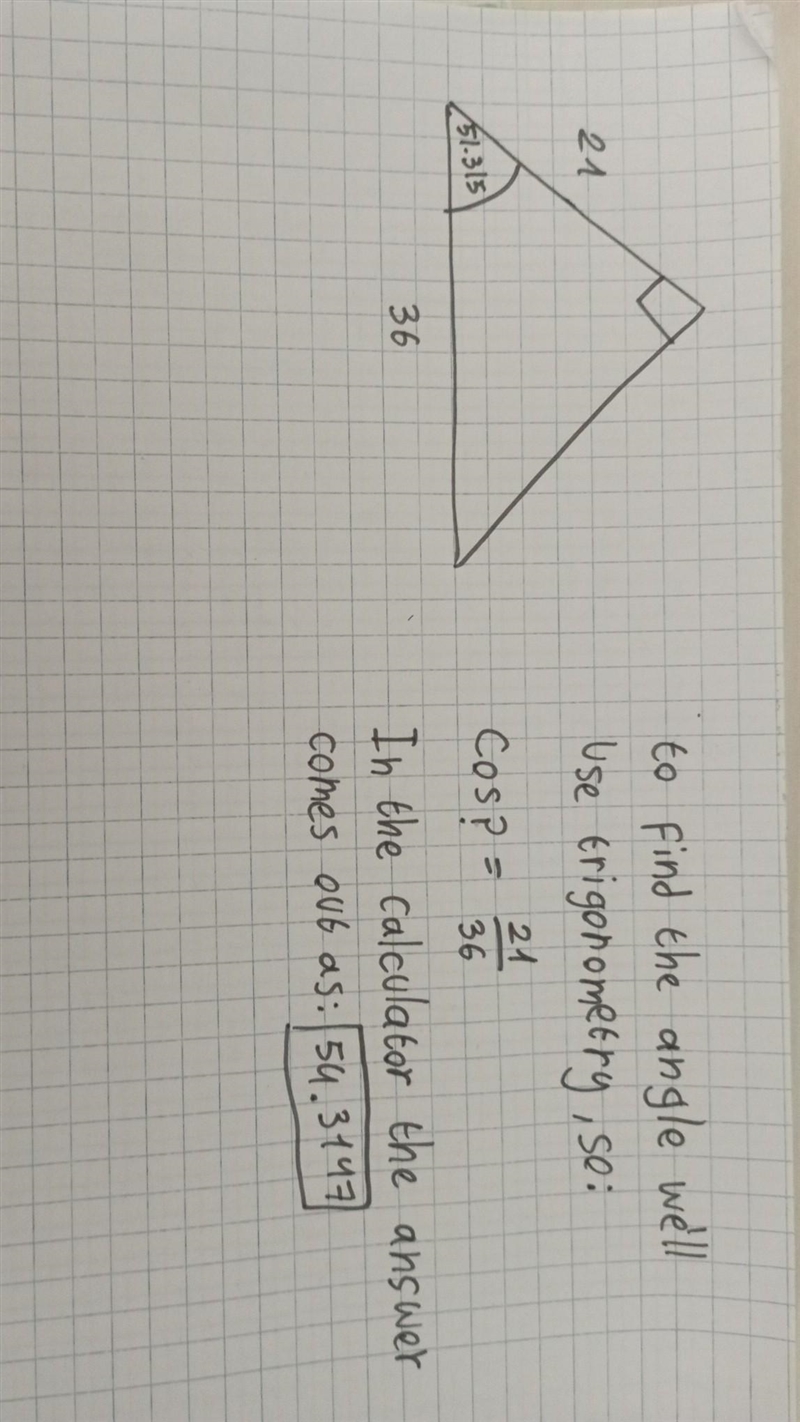 21
51.315
36
to find the angle we'll
Use trigonometry, so:
Cos? = 21/36
In the calculator the answer
comes out as: 54.3147